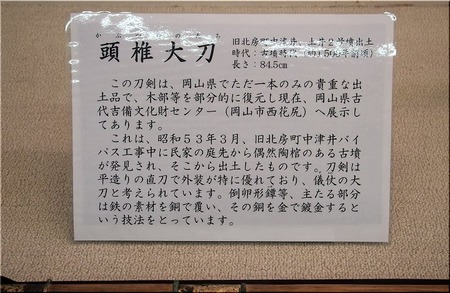 かぶつちのたち
頭椎大刀
旧北房町中津井、土井2号墳出土
時代：古墳時代
長さ：84.5cm
この刀剣は、岡山県でただ一本のみの貴重な出
土品で、木部等を部分的に復元し現在、岡山県古
代吉備文化財センター（岡山市西花尻）へ展示し
てあります。
これは、昭和53年3月、旧北房町中津井バイ
パス工事中に民家の庭先から偶然陶棺のある古墳
が発見され、そこから出土したものです。刀剣は
平造りの直刀で外装が特に優れており、儀仗の大
刀と考えられています。倒卵形鐔等、主たる部分
は鉄の素材を銅で覆い、その銅を金で鍍金すると
いう技法をとっています。